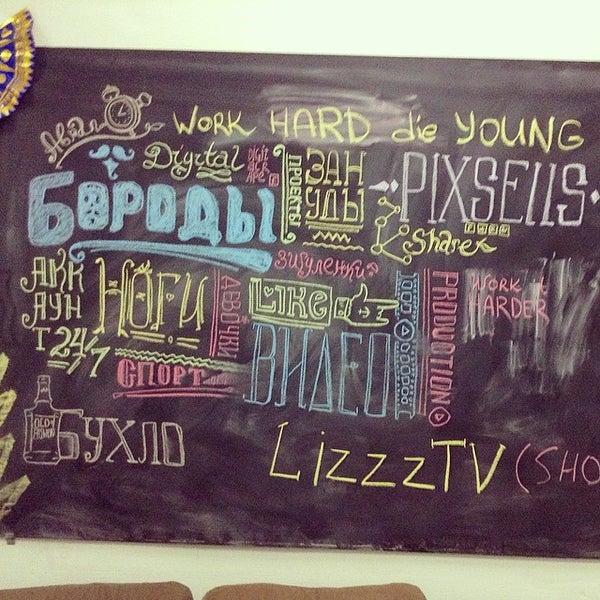 Авгалы
WORK HARD die YOUNG
Digital
БОРОДЫ
ПРОЕКТЫ
ЗАН
УДЫ
PIXSELLS
Share
АКК
АУН
Т 24/7
НОГИ
ДЕВОЧКИ
LIKE
PRODUCTION
WORK
HARDER
СПОРТ
ВИДЕО
БУХЛО
LizzzTV (SHO